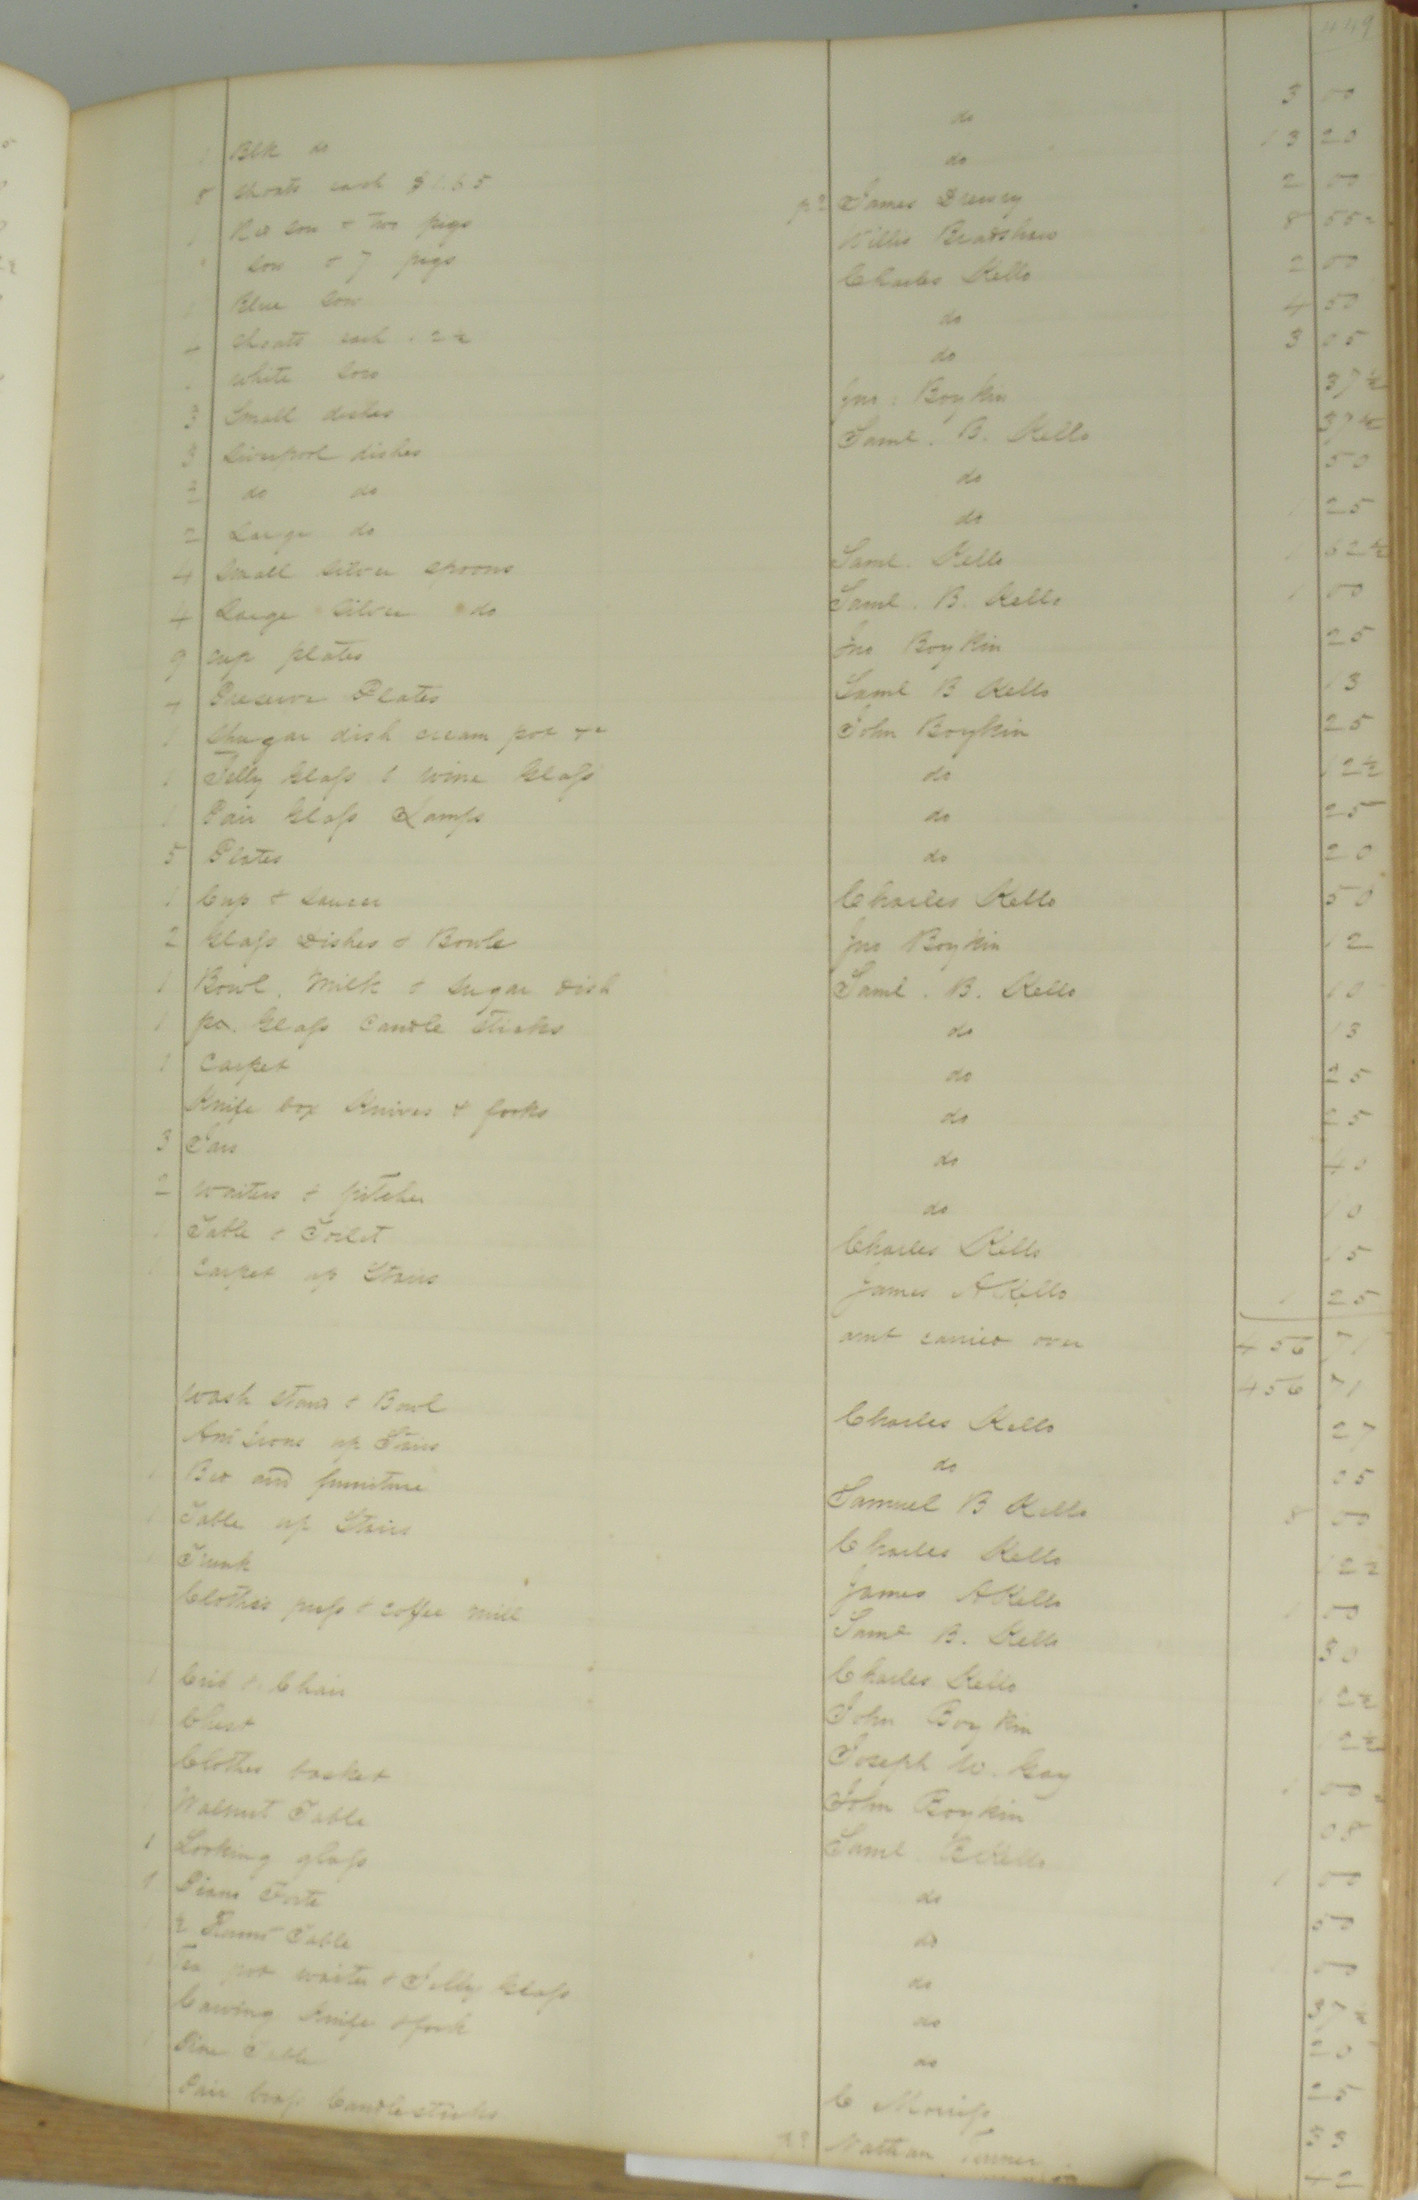 449
1 Blk do do 3 00
8 Shoats each $1.65 do 13 20
1 Red Sow & two pigs pd James Drewry 2 00
1 Sow & 7 pigs Willis Bradshaw 8 55
1 Blue Sow Charles Kello 2 00
Shoats each do 4 50
1 White Sow do 3 05
3 Small dishes Jno: Boykin 37½
3 Liverpool dishes Saml. B. Kello 37½
2 do do do 50
2 Large do do 1 25
4 Small Silver Spoons Saml. Kello 1 62½
4 Large Silver do Saml. B. Kello 1 00
9 cup plates Jno Boykin 25
Preserve Plates Saml B Kello 13
1 Shugar dish cream pot &c John Boykin 25
1 Jelly Glass & Wine Glass do 12½
1 Pair Glass Lamps do 25
5 Plates do 20
1 Cup & Saucer Charles Kello 50
2 Glass Dishes & Bowle Jno Boykin 12
1 Bowl, Milk & Sugar dish Saml. B. Kello 10
1 pr. Glass Candle Sticks do 13
1 Carpet do 25
Knife box Knives & forks do 25
3 Jars do 40
2 Waiters & pitcher do 10
1 Table & Toilet Charles Kello 15
1 Carpet up Stairs James A Kello 1 25
amt carried over 456 71
456 71
Wash Stand & Bowl Charles Kello 27
And Irons up Stairs do 05
1 Bed and furniture Samuel B Kello 8 00
1 Table up Stairs Charles Kello 12½
Trunk James A Kello 1 00
Clothes press & Coffee Mill Saml B. Kello 50
1 Crib & Chair Charles Kello 12½
Chest John Boykin 12½
Clothes basket Joseph W. Gay 1 00
Walnut Table John Boykin 08
1 Looking glass Saml. B Kello 1 00
1 Piano Forte do 50
Table do 00
Tea pot waiter & Jelly Glass do 37½
Carving Knife & fork do 20
1 Pine Table do 25
Pair brass Candlesticks C Morriss
Nathan Turner